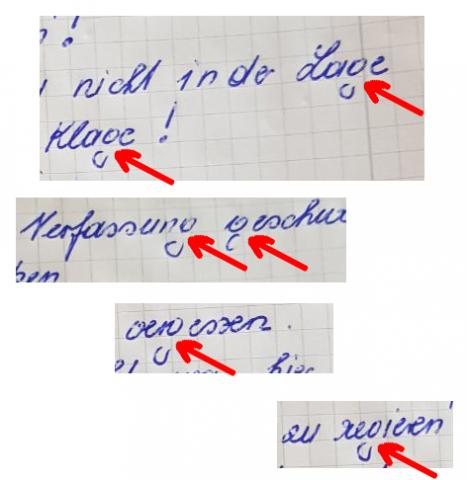 !
nicht in der Lage
Klage!
Verfassung geschw
ben
gewessen.
hier
zu regieren